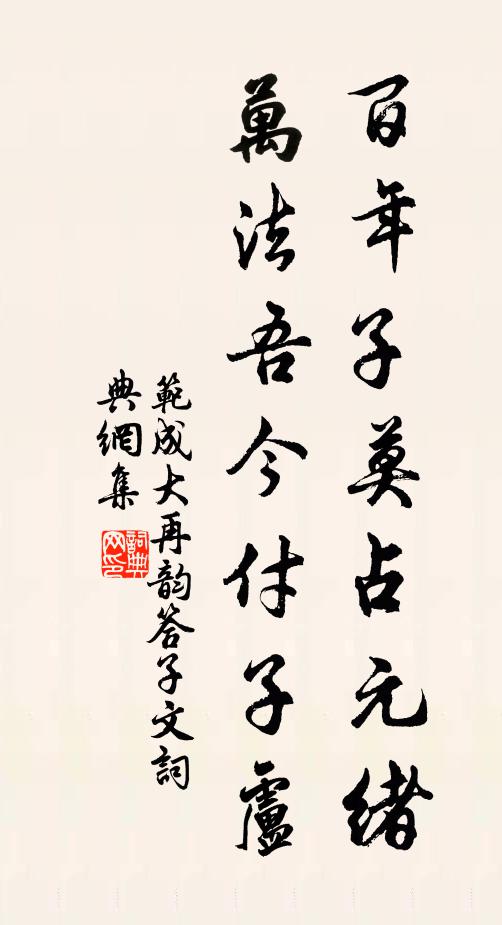 百年子莫占元緒
萬法吾今付子盧
範成大再韵答子文詞
典網集
詞典
网印